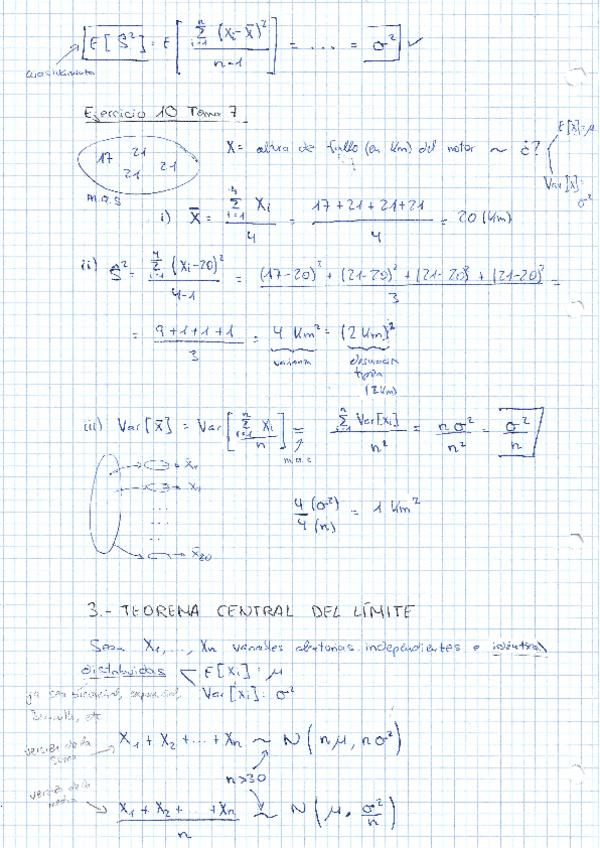 E[Ŝ²] = E[ Σ_{i=1}^{n} (Xi-X̄)² / (n-1) ] = .... = σ² ✓
Ejercicio 10 Tema 7
17 21 21 21
m.a.s
X = altura de fallo (en Km) del motor ~ ¿? E[X]=μ
Var[X]=σ²
i) X̄ = Σ_{i=1}^{4} Xi / 4 = (17+21+21+21) / 4 = 20 (Km)
ii) Ŝ² = Σ_{i=1}^{4} (Xi-20)² / (4-1) = ((17-20)² + (21-20)² + (21-20)² + (21-20)²) / 3 =
= (9+1+1+1) / 3 = 4 Km² = (2 Km)²
varianza desviación típica
(2 Km)
iii) Var[X̄] = Var[ Σ_{i=1}^{n} Xi / n ] = Σ_{i=1}^{n} Var[Xi] / n² = nσ² / n² = σ² / n
m.a.s
X̄1
X̄20
4/4 (σ²)/(n) = 1 Km²
3.- TEOREMA CENTRAL DEL LÍMITE
Sean X1, ..., Xn variables aleatorias independientes e
distribuidas E[Xi] = μ
Var[Xi] = σ²
X1 + X2 + ... + Xn ~ N(nμ, nσ²)
versión de la suma
n>30
versión de la media
(X1 + X2 + ... + Xn) / n ~ N(μ, σ²/n)